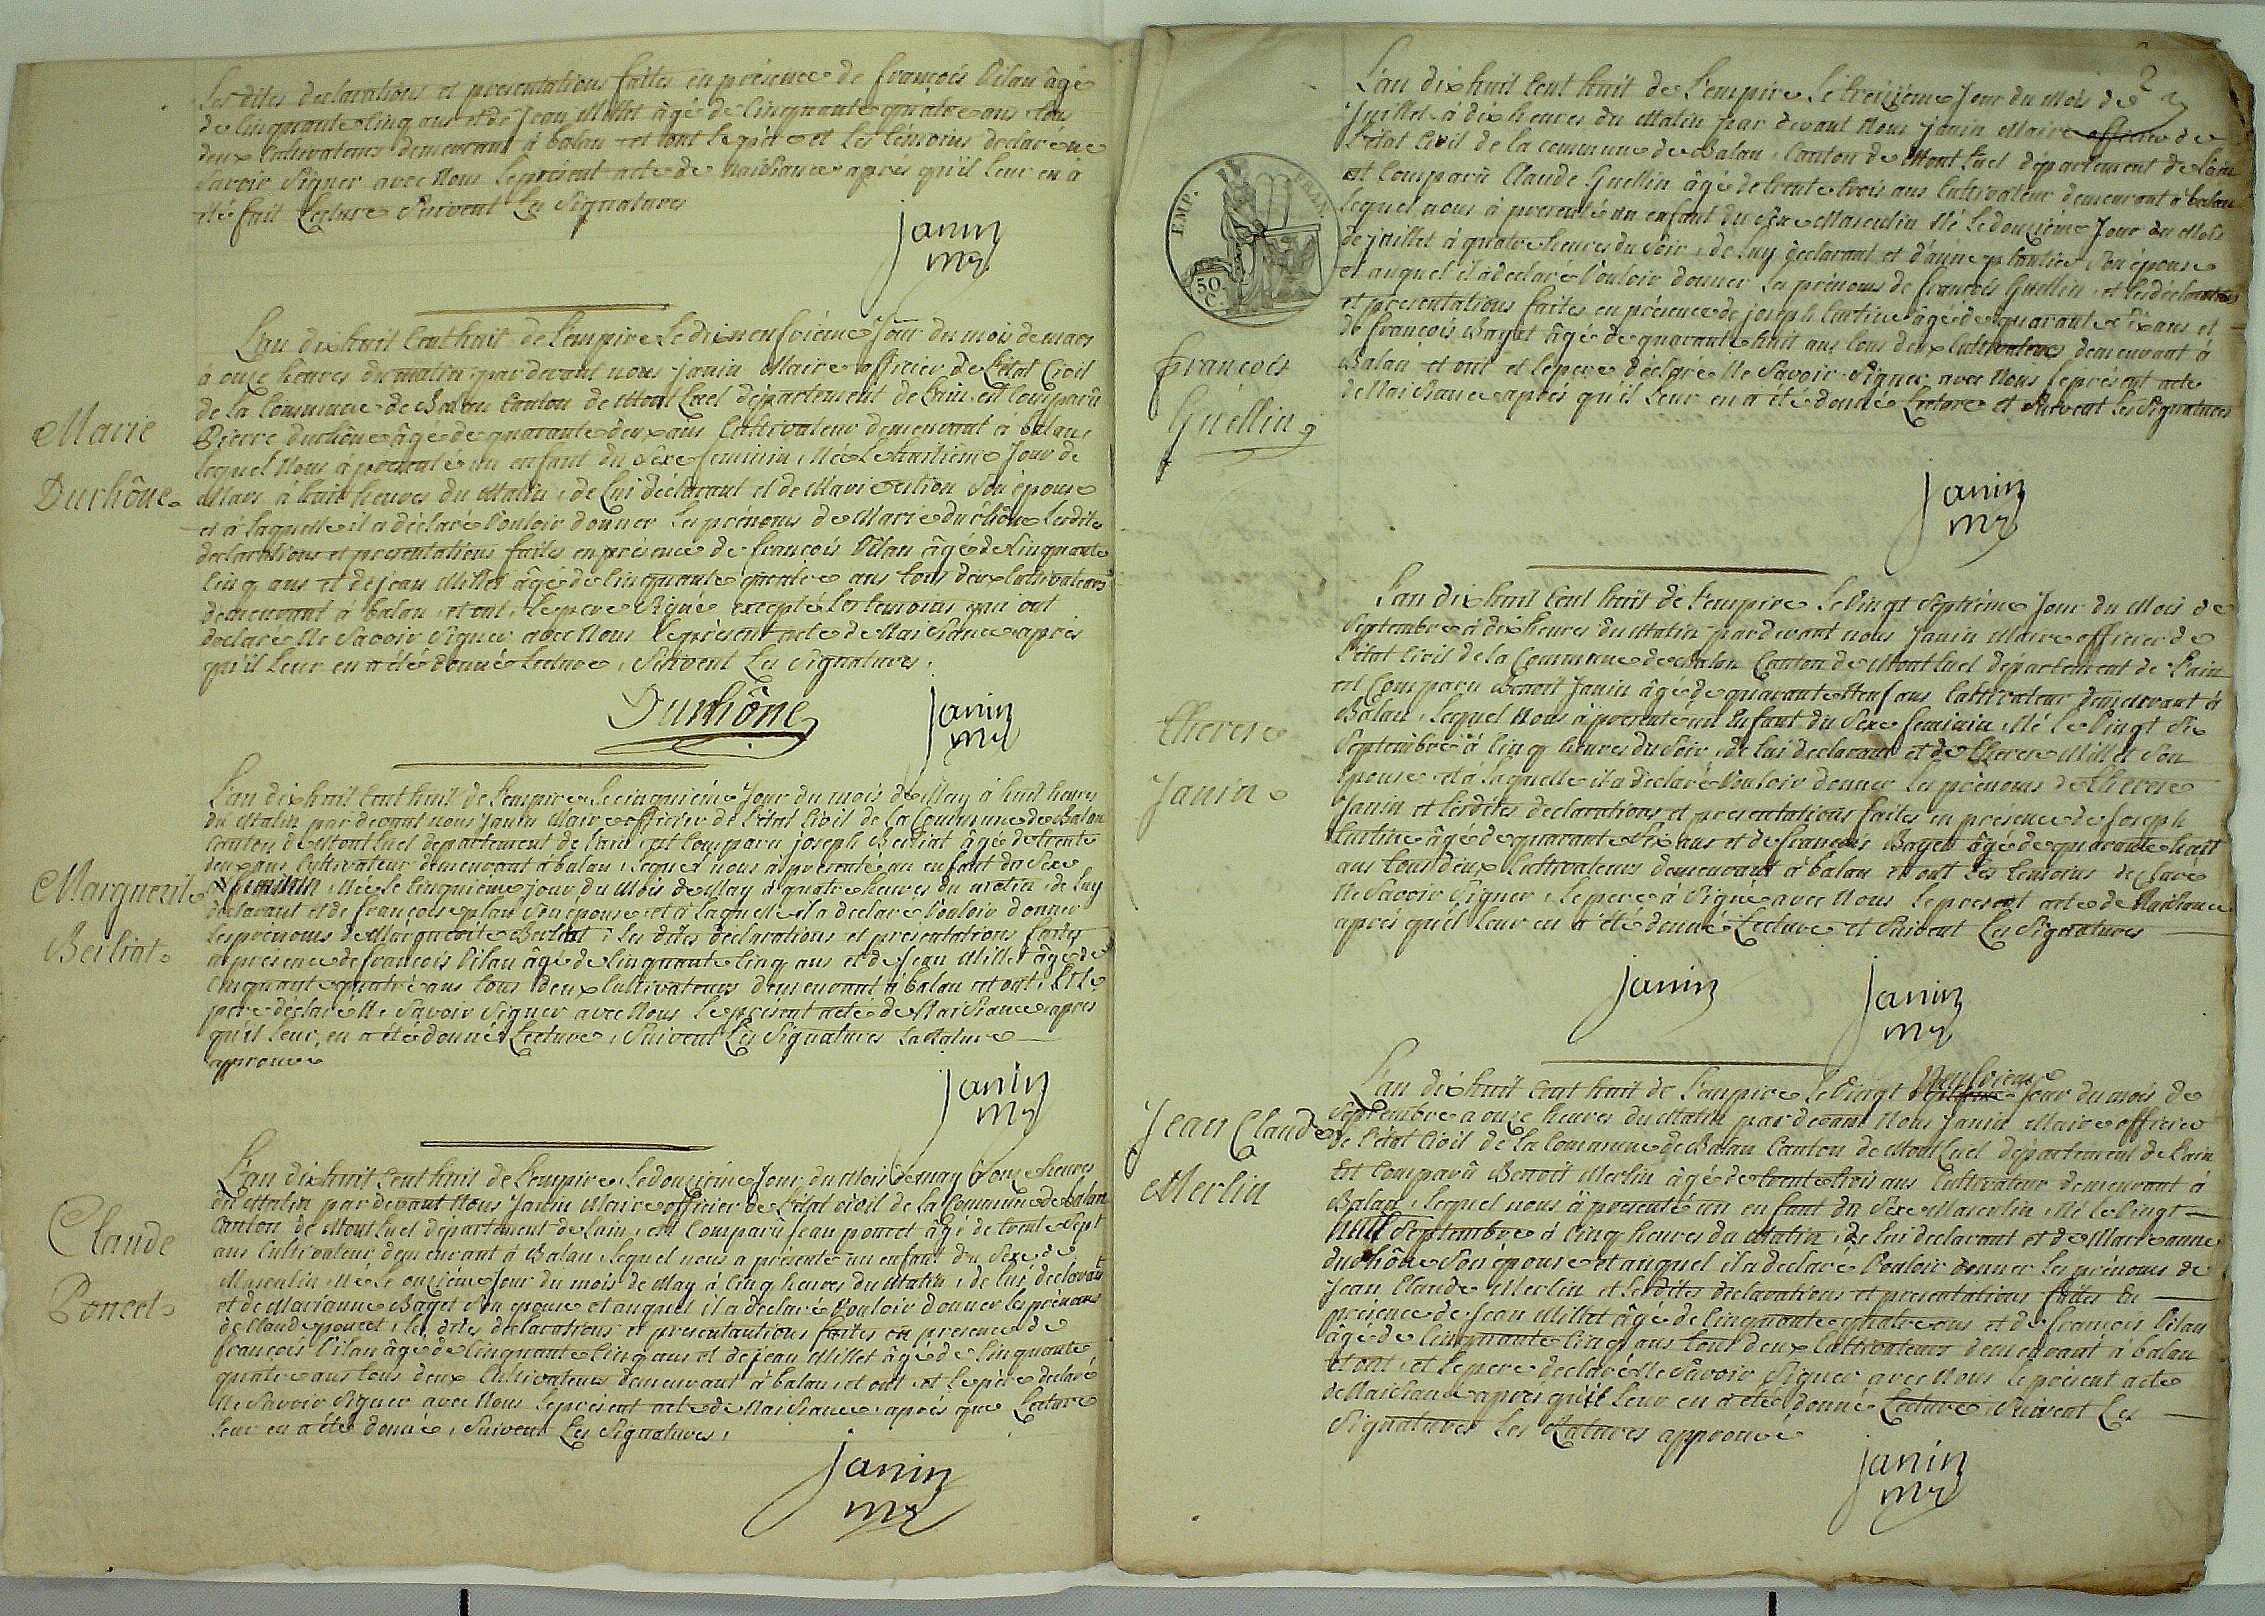 Les dites declarations et presentations faites en présence de françois Pilan âgé
de Cinquante Cinq ans et de Jean Millet âgé de Cinquante quatre ans tous
deux Cultivateurs demeurant à balan et ont le père et les témoins declaré ne
Savoir Signer avec Nous le présent acte de Naissance après qu'il leur en à
été fait Lecture Suivent Les Signatures
janin
mre
Marie
Duchône
L'an dix huit Cent huit de L'empire Le dix neufvième Jour du mois de mars
à onze heures du matin par devant nous janin Maire officier de L'état Civil
de la Commune de Balan Canton de Mont Luel département de L'ain est Comparû
Pierre duchône âgé de quarante deux ans Cultivateur demeurant à balan
lequel Nous à presenté un enfant du Sexe feminin Née Le huitième Jour de
Mars à huit heures du Matin, de Lui déclarant et de Marie Son épouse
et à laquelle il a déclaré Vouloir donner Les prénoms de Marie duchône Lesdites
declarations et presentations faites en présence de françois Pilan âgé de Cinquante
Cinq ans et de jean Millet âgé de Cinquante quatre ans tous deux Cultivateurs
demeurant à balan, et ont, Le pere Signé excepté les temoins qui ont
declaré Ne Savoir Signer avec Nous Le présent acte de Naissance après
qu'il leur en a été donné Lecture, Suivent Les Signatures.
Duchône
janin
mre
Marguerite
Berliat
L'an dix huit Cent huit de L'empire Le cinquième Jour du mois de May à huit heures
du Matin par devant nous Janin Maire officier de L'état Civil de La Commune de Balan
Canton de Mont Luel departement de L'ain est Comparu joseph Berliat âgé de trente
deux ans Cultivateur demeurant à balan, Lequel nous à presenté un enfant du Sexe
feminin, Née Le Cinquième jour du Mois de May à quatre heures du matin, de Luy
déclarant et de françoise plan Son épouse, et à Laquelle il a declaré Vouloir donner
Les prénoms de Marguerite Berliat; Les dites declarations et presentations faites
en presence de françois Pilan âgé de Cinquante Cinq ans et de Jean Millet âgé de
Cinquante quatre ans tous deux Cultivateurs demeurant à balan et ont, et Le
pere declaré Ne Savoir Signer avec Nous Le présent acte de Naissance après
qu'il Leur en a été donné Lecture, Suivent Les Signatures La Rature
approuvée
janin
mre
Claude
Poncet
L'an dix huit Cent huit de L'empire, Le douzième Jour du Mois de may à onze heures
du Matin par devant Nous Janin Maire officier de L'état civil de la Commune de balan
Canton de Mont Luel departement de Lain, est Comparû Jean poncet âgé de trente Sept
ans Cultivateur demeurant à Balan, Lequel nous a présenté un enfant du Sexe de
Masculin Né Le onzième Jour du mois de May à Cinq heures du Matin, de Lui declarant
et de Marianne Baget Son epouse et auquel il a declaré Vouloir donner les prénoms
de Claude poncet, les dites declarations et presentautions faites en presence de
françois Pilan âgé de Cinquante Cinq ans et de jean Millet âgé de Cinquante
quatre ans tous deux Cultivateurs demeurant à balan, et ont, et Le père declaré
Ne Savoir Signer avec Nous Le présent acte de Naissance, après que Lecture
leur en a été donné, Suivent Les Signatures,
janin
mre
2
EMP. FRAN.
50 C.
françois
Guéllin
L'an dix huit Cent huit de L'empire Le treizième Jour du Mois de
Juillet à dix heures du Matin par devant Nous janin Maire officier de
L'état Civil de la commune de Balan, Canton de Mont Luel département de Lain
est Comparû Claude Guellin âgé de trente trois ans Cultivateur demeurant à balan
lequel nous à presenté un enfant du Sexe Masculin Né Le douzième Jour du Mois
de juillet à quatre heures du Soir, de Luy declarant et d'anne plantier Son épouse
et auquel il à declaré Vouloir donner Les prénoms de françois Guellin, et les déclarations
et presentations faites en présence de joseph âgé de quarante Six ans et
de françois Baget âgé de quarante huit ans tous deux Cultivateurs demeurant à
Balan et ont et le pere déclaré Ne Savoir Signer avec Nous le présent acte
de Naissance après qu'il leur en a été donné Lecture et Suivent Les Signatures
janin
mre
therese
Janin
L'an dix huit Cent huit de L'empire Le Vingt Septième Jour du Mois de
Septembre à dix heures du Matin par devant nous Janin Maire officier de
L'état Civil de la Commune de Balan Canton de Mont Luel département de Lain
est Comparu Benoit Janin âgé de quarante Neuf ans Cultivateur demeurant à
Balan, Lequel Nous à presenté un Enfant du Sexe feminin, Né Le Vingt Six
Septembre à Cinq heures du Soir, de Lui declarant et de therese Millet Son
épouse et à Laquelle il a declaré Vouloir donner Les prénoms de therese
Janin et les dites declarations et presentations faites en présence de Joseph
âgé de quarante Six ans et de francois Baget âgé de quarante huit
ans tous deux Cultivateurs demeurant à balan et ont Les temoins declaré
Ne Savoir Signer, Le pere à Signé avec Nous Le present acte de Naissance
après qu'il Leur en a été donné Lecture et Suivent Les Signatures
janin
janin
mre
Jean Claude
Merlin
Neufvieme
L'an dix huit Cent huit de L'empire Le Vingt Jour du mois de
Septembre à onze heures du Matin par devant Nous Janin Maire officier
de L'état Civil de La Commune de Balan Canton de Mont Luel département de Lain
Est Comparû Benoit Merlin âgé de trente trois ans Cultivateur demeurant à
Balan, Lequel nous à presenté un enfant du Sexe Masculin Né Le Vingt
huit Septembre à Cinq heures du Matin, de Lui declarant et de Marianne
duchône Son épouse et auquel il a declaré Vouloir donner Les prénoms de
Jean Claude Merlin et Les dites declarations et presentations faites En
presence de Jean Millet âgé de Cinquante quatre ans et de françois Pilan
âgé de Cinquante Cinq ans tout deux Cultivateurs demeurant à balan
et ont, et Le pere declaré Ne Savoir Signer avec Nous Le présent acte
de Naissance après qu'il Leur en a été donné Lecture, Suivent Les
Signatures Les Ratures approuvé
janin
mre